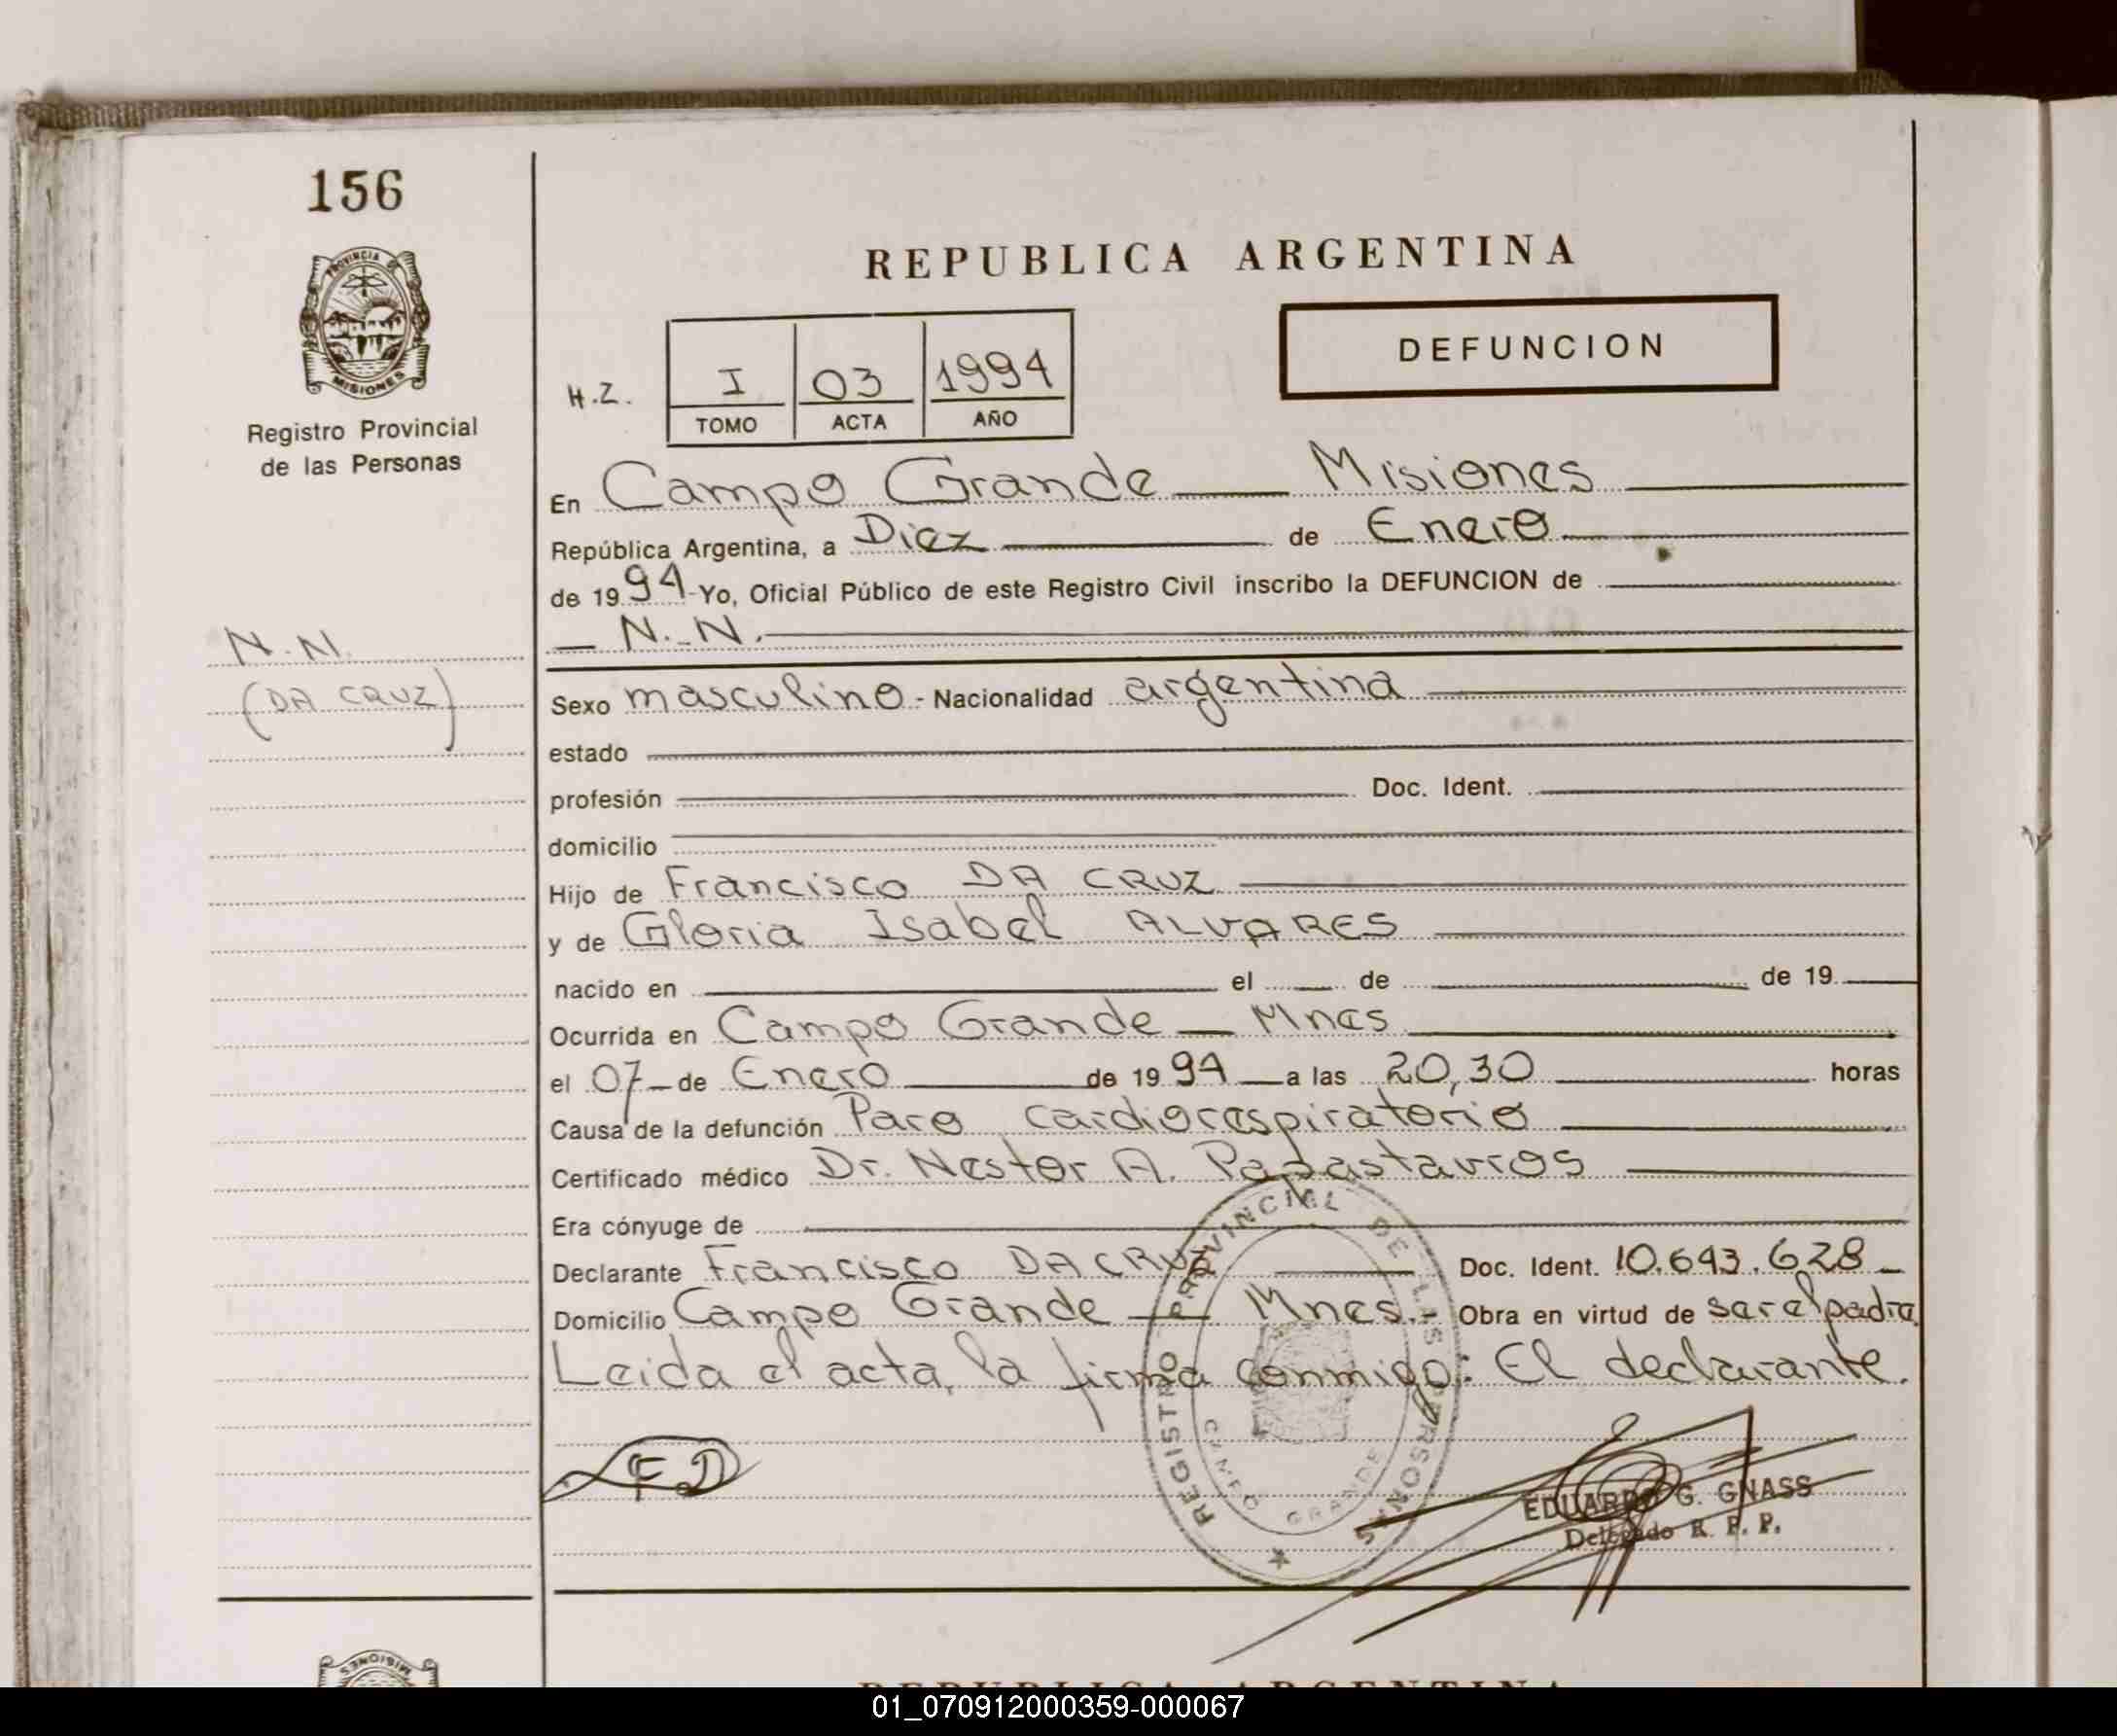 156
PROVINCIA DE
MISIONES
Registro Provincial
de las Personas
N.N.
(DA CRUZ)
REPUBLICA ARGENTINA
DEFUNCION
H.Z.
I 03 1994
TOMO ACTA AÑO
En Campo Grande — Misiones
República Argentina, a Diez de Enero
de 1994 - Yo, Oficial Público de este Registro Civil inscribo la DEFUNCION de
— N._N.
Sexo masculino - Nacionalidad argentina
estado
profesión Doc. Ident.
domicilio
Hijo de Francisco DA CRUZ
y de Gloria Isabel ALVARES
nacido en el de de 19
Ocurrida en Campo Grande — Mnes
el 07 - de Enero de 1994 a las 20,30 horas
Causa de la defunción Paro cardiorespiratorio
Certificado médico Dr. Nestor A. Papastavros
Era cónyuge de
Declarante Francisco DA CRUZ Doc. Ident. 10.643.628 -
Domicilio Campo Grande — Mnes.- Obra en virtud de ser el padre
Leida el acta, la firma conmigo: El declarante.
FD
REGISTRO PROVINCIAL DE LAS PERSONAS
CAMPO GRANDE
EDUARDO G. GNASS
Delegado R. P. P.
MISIONES
REPUBLICA ARGENTINA
01_070912000359-000067